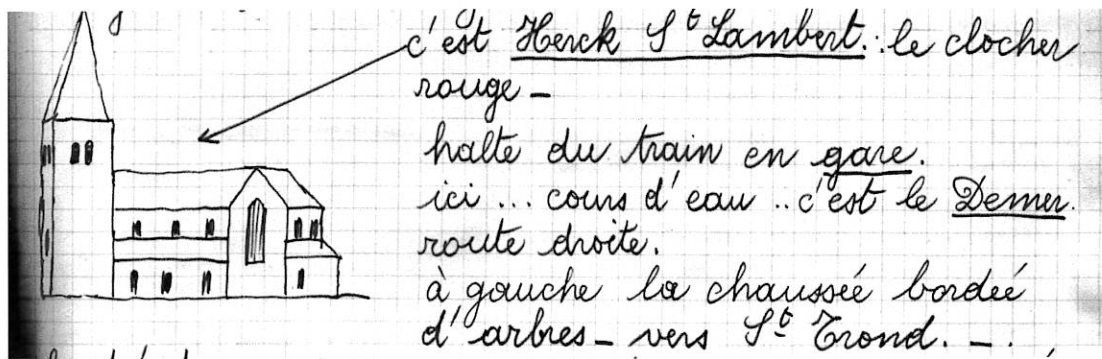 c'est Herck St Lambert. : le clocher
rouge -
halte du train en gare.
ici ... cours d'eau .. c'est le Demer.
route droite.
à gauche la chaussée bordée
d'arbres - vers St Trond. -.